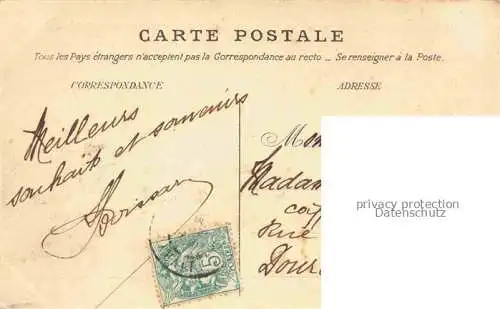 CARTE POSTALE
Tous les Pays étrangers n'acceptent pas la Correspondance au recto ... Se renseigner à la Poste.
CORRESPONDANCE
ADRESSE
Meilleurs
souhaits et souvenirs
Mon
Madam
Rue
privacy protection
Datenschutz
5